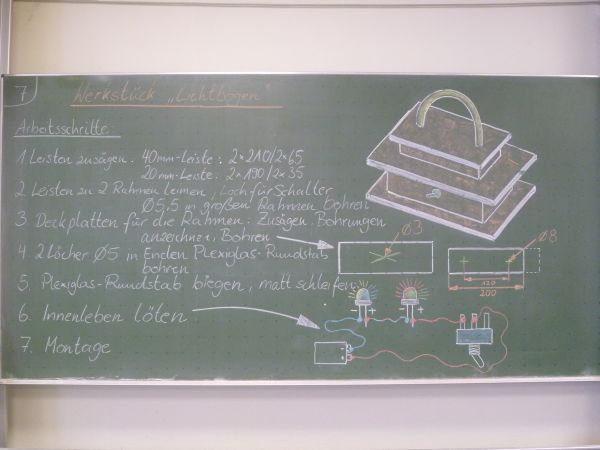 7
Werkstück „Lichtbogen"
Arbeitsschritte
1. Leisten zusägen: 40mm-Leiste: 2×210/2×65
20mm-Leiste: 2×190/2×35
2. Leisten zu 2 Rahmen leimen, Loch für Schalter
Ø5,5 in großen Rahmen bohren
3. Deckplatten für die Rahmen: Zusägen, Bohrungen
anzeichnen, Bohren
Ø3
Ø8
4. 2 Löcher Ø5 in Enden Plexiglas-Rundstab
bohren
120
200
5. Plexiglas-Rundstab biegen, matt schleifen
6. Innenleben löten
+
-
+
-
+
7. Montage